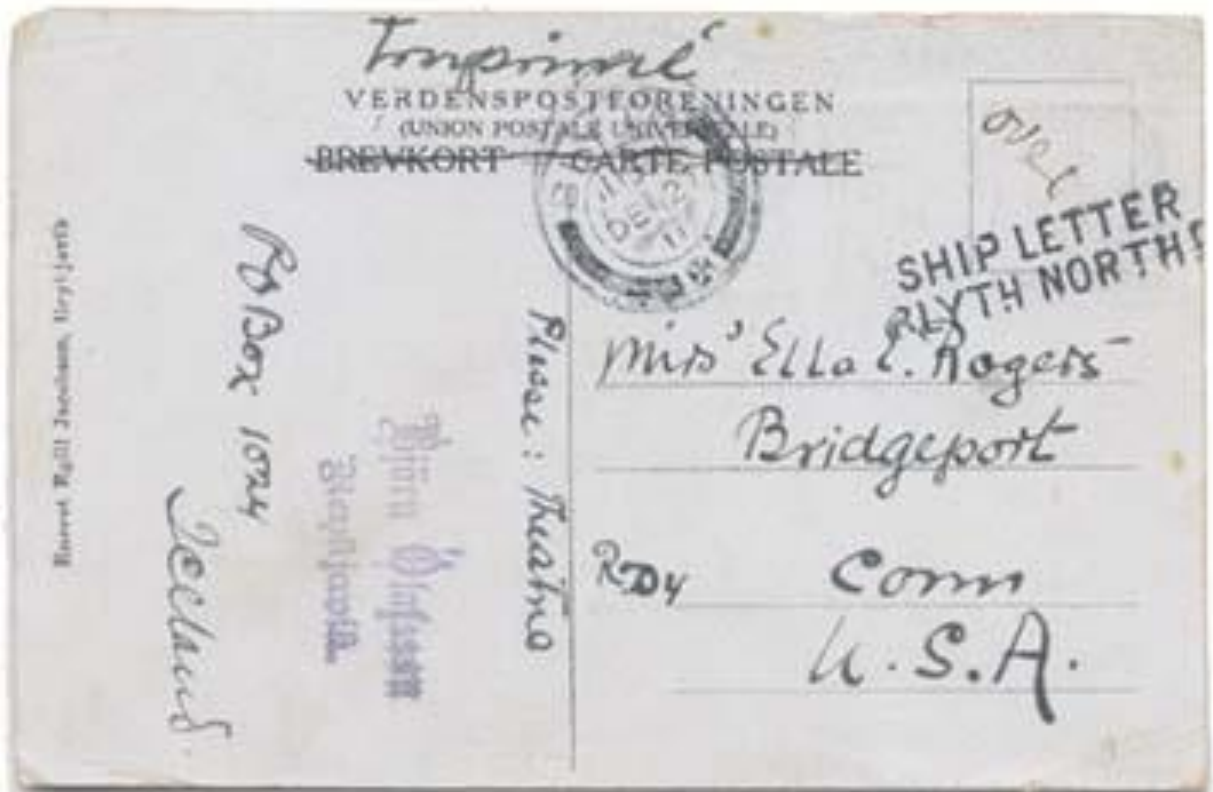 Imprimé
VERDENSPOSTFORENINGEN
(UNION POSTALE UNIVERSELLE)
BREVKORT CARTE POSTALE
over
SHIP LETTER
BLYTH NORTH
DE 2
17
Miss Ella E. Rogers
Bridgeport
RD4 Conn
U.S.A.
Please:
Björn Ólafsson
Reykjavik.
Box 1024
Iceland.
Reykjavík